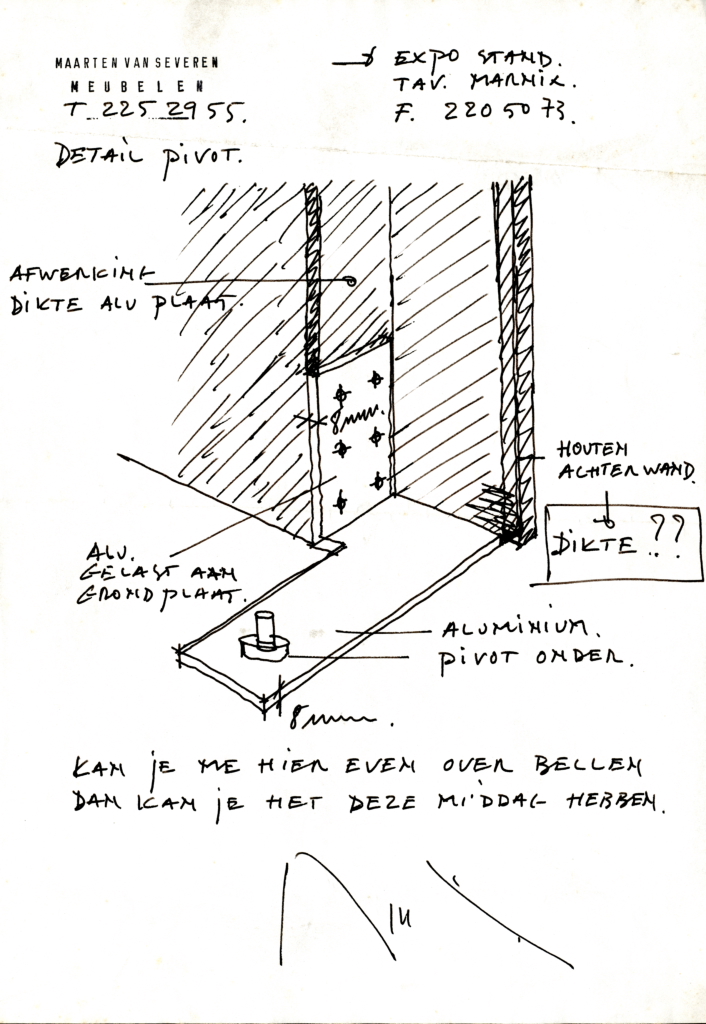 MAARTEN VAN SEVEREN
MEUBELEN
T 225 29 55.
EXPO STAND.
TAV. MARNIX.
F. 220 50 73.
DETAIL PIVOT.
AFWERKING
DIKTE ALU PLAAT.
8mm.
HOUTEN
ACHTERWAND.
DIKTE ??
ALU.
GELAST AAN
GRONDPLAAT.
ALUMINIUM.
PIVOT ONDER.
8mm.
KAN JE ME HIER EVEN OVER BELLEN
DAN KAN JE HET DEZE MIDDAG HEBBEN.